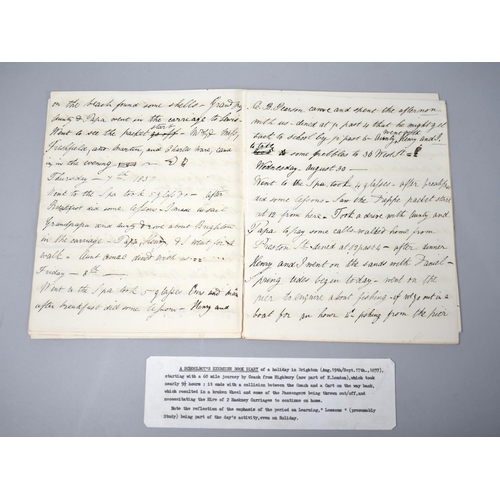 on the beach found some shells - Grand
& Papa went in the carriage to
Went to see the packet start
in the evening
Thursday - 7th 1837
Went to the Spa took 5 glasses - after
Breakfast did some lessons -
Grandpapa and drove about Brighton
in the carriage - Papa, & I went for a
walk - Aunt dined with us
Friday - 8th
Went to the Spa took 5 glasses
after breakfast did some lessons - Henry and
C. B. Pearson came and spent the afternoon
with us - dined at ½ past that he might get
back to school by ½ past Aunty, Henry and I
went with to take some to 36 West St
Wednesday August 30 -
Went to the Spa took 4 glasses - after breakfast
did some lessons - saw the Dieppe packet start
at 12 from here - Took a drive with Aunty and
Papa to pay some calls - walked home from
Preston St - dined at - after dinner
Henry and I went on the sands with Daniel -
spring tides began to day - went on the
pier to enquire about fishing - if we go out in a
boat for an hour fishing from the pier
A SCHOOLBOY'S EXERCISE BOOK DIARY of a holiday in Brighton (Aug.19th/Sept.17th., 1837),
starting with a 60 mile journey by Coach from Highbury (now part of N.London), which took
nearly 9½ hours : it ends with a collision between the Coach and a Cart on the way back,
which resulted in a broken Wheel and some of the Passengers being thrown out/off, and
necessitating the Hire of 2 Hackney Carriages to continue on home.
Note the reflection of the emphasis of the period on Learning, " Lessons " (presumably
Study) being part of the day's activity, even on Holiday.